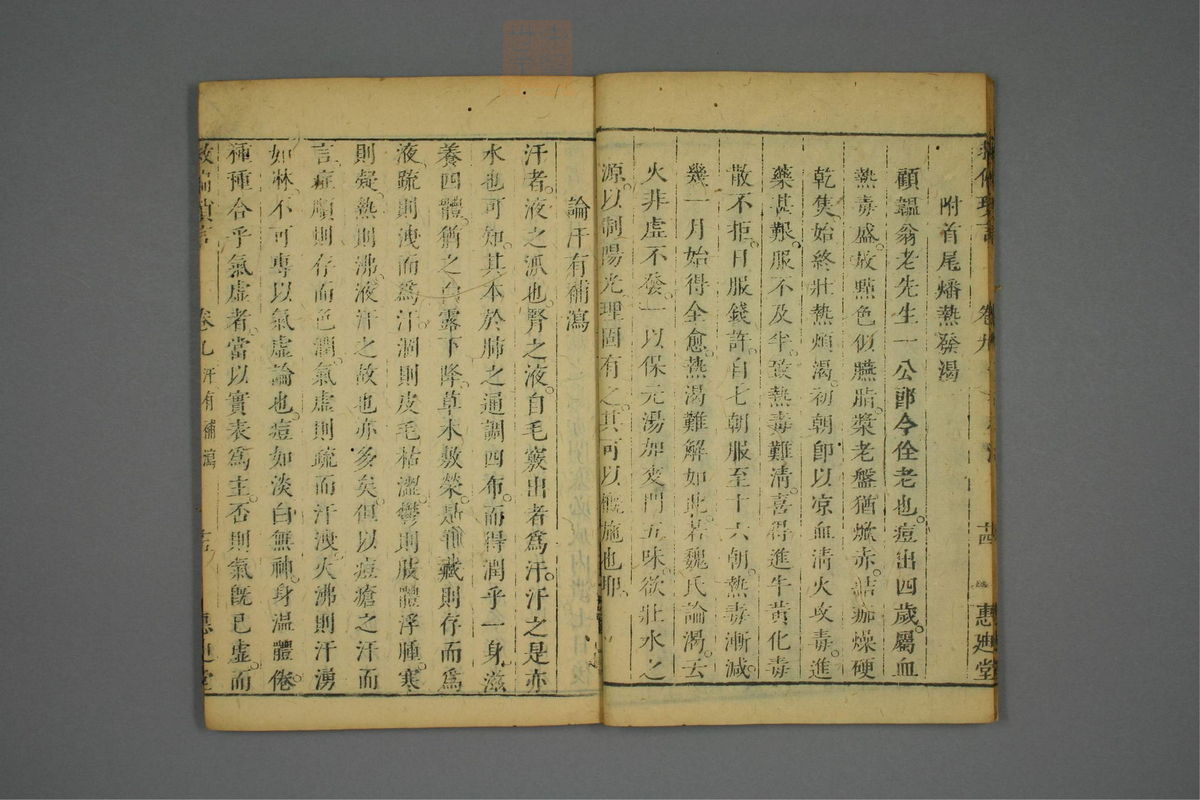 救偏瑣言 卷九 𦮼 惠迪堂
附首尾燔熱發渴
顧韞翁老先生一公郎今佺老也痘出四歲屬血
熱毒盛故㸃色似臙脂漿老盤猶焮赤結痂燥硬
乾隻始終壯熱煩渴初朝卽以凉血淸火攻毒進
藥甚艱服不及半致熱毒難淸喜得進牛黃化毒
散不拒日服錢許自七朝服至十六朝熱毒漸減
幾一月始得全愈熱渴難解如此若魏氏論渴云
火非虛不發一以保元湯加麥門五味欲壯水之
源以制陽光理固有之其可以槪施也耶
論汗有補瀉
汗者液之派也腎之液自毛竅出者爲汗汗之是亦
水也可知其本於肺之通調四布而得潤乎一身滋
養四體猶之白露下降草木敷榮是
則存而爲
液疏則洩而爲汗涸則皮毛枯澀鬱則肢體浮腫寒
則凝熱則沸液汗之故也亦多矣但以痘瘡之汗而
言症順則存而色潤氣虛則疏而汗洩火沸則汗湧
如淋不可專以氣虛論也痘如淡白無神身温體倦
種種合乎氣虛者當以實表爲主否則氣旣已虛而
救偏瑣言 卷九 汗有補瀉 惠迪堂